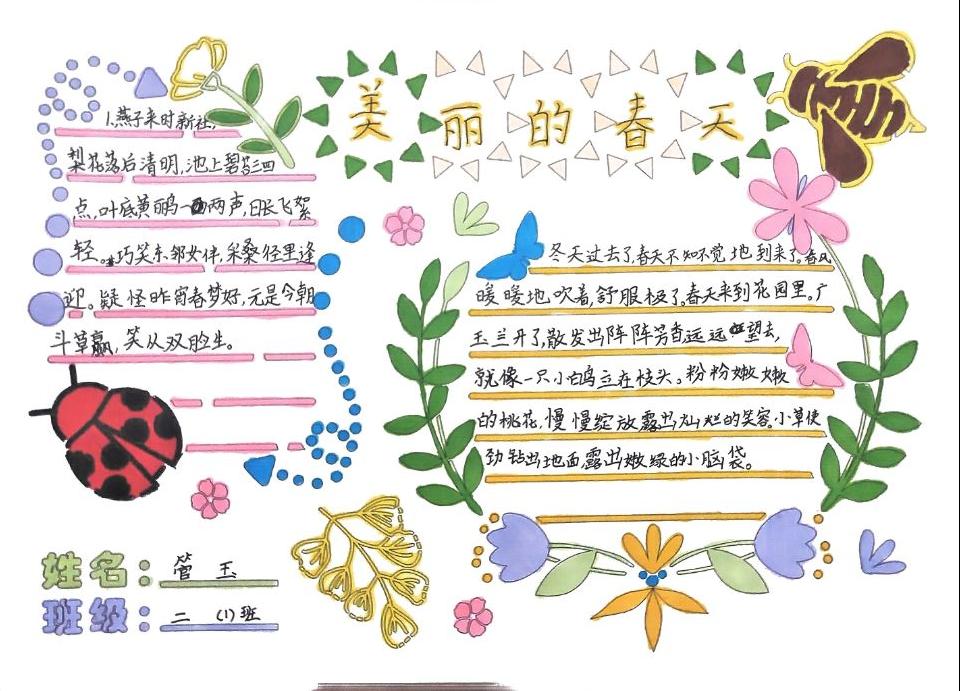 美丽的春天
1.燕子来时新社,
梨花落后清明,池上碧苔三四
点,叶底黄鹂一两声,日长飞絮
轻。巧笑东邻女伴,采桑径里逢
迎。疑怪昨宵春梦好,元是今朝
斗草赢,笑从双脸生。
冬天过去了,春天不知不觉地到来了。春风
暖暖地吹着,舒服极了。春天来到花园里。广
玉兰开了,散发出阵阵芳香,远远望去,
就像一只小白鸽立在枝头。粉粉嫩嫩
的桃花,慢慢绽放露出灿烂的笑容。小草使
劲钻出地面露出嫩绿的小脑袋。
姓名:管玉
班级:二(1)班